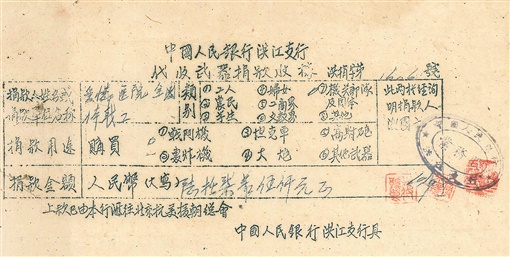 中國人民銀行洪江支行
代收武器捐款收據 洪捐字第 1606 號
捐款人姓名或捐款單位名稱 醫院全體 類別 ①工人 ②農民 ③学生 ④婦女 ⑤工商界 ⑥文教界 ⑦機关部隊及团体 ⑧其他 此両栏經洵明捐款人
捐款用途 購買 ①戰鬥機 ②轟炸機 ③坦克車 ④大炮 ⑤高射砲 ⑥其他武器
捐款金額 人民幣(大寫) 陸拾柒萬伍仟元正
上款已由本行滙往北京抗美援朝總會
中國人民銀行洪江支行具